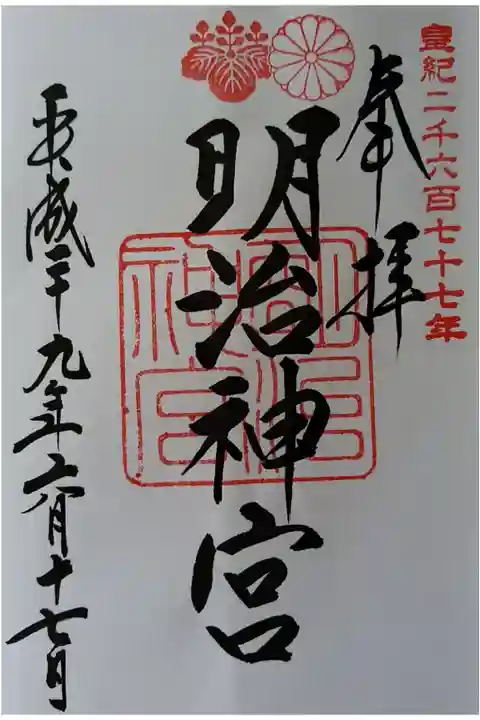 皇紀二千六百七十七年
奉拝
明治神宮
明治
神宮
平成二十九年六月十七日